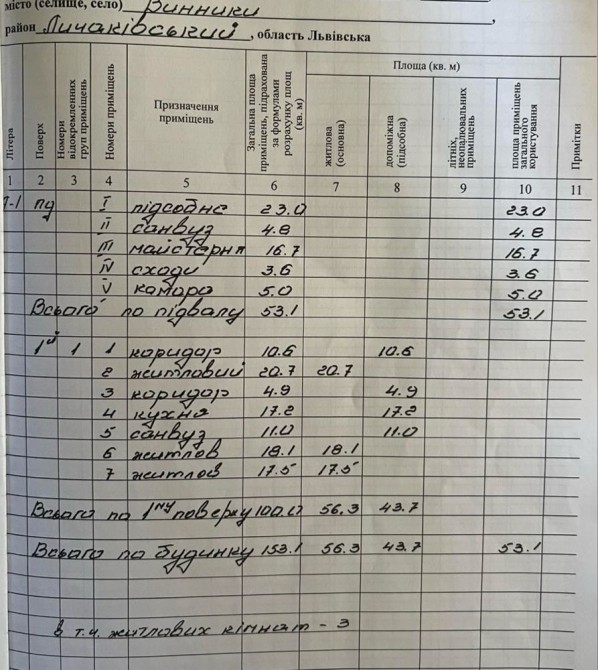 місто (селище, село) Винники,
район Личаківський, область Львівська
Літера
Поверх
Номери відокремленних груп приміщень
Номери приміщень
Призначення приміщень
Загальна площа приміщень, підрахована за формулами розрахунку площ (кв. м)
Площа (кв. м)
житлова (основна)
допоміжна (підсобна)
літніх, неопалювальних приміщень
площа приміщень загального користування
Примітки
1 2 3 4 5 6 7 8 9 10 11
пд I підсобне 23.0 23.0
II санвуз 4.8 4.8
III майстерня 16.7 16.7
IV сходи 3.6 3.6
V комора 5.0 5.0
Всього по підвалу 53.1 53.1
1й 1 1 коридор 10.6 10.6
2 житловий 20.7 20.7
3 коридор 4.9 4.9
4 кухня 17.2 17.2
5 санвуз 11.0 11.0
6 житлов 18.1 18.1
7 житлов 17.5 17.5
Всього по 1му поверху 100.0 56.3 43.7
Всього по будинку 153.1 56.3 43.7 53.1
в т.ч. житлових кімнат - 3